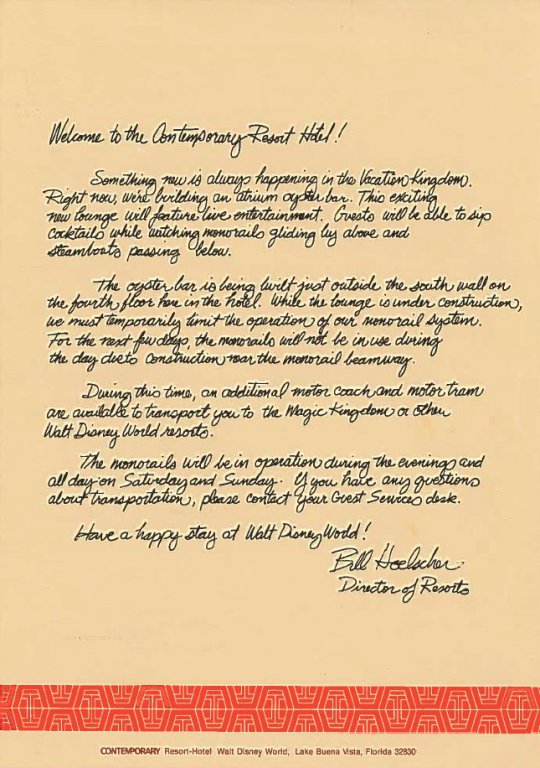 Welcome to the Contemporary Resort Hotel!
Something new is always happening in the Vacation Kingdom.
Right now, we're building an atrium oyster bar. This exciting
new lounge will feature live entertainment. Guests will be able to sip
cocktails while watching monorails gliding by above and
steamboats passing below.
The oyster bar is being built just outside the south wall on
the fourth floor here in the hotel. While the lounge is under construction,
we must temporarily limit the operation of our monorail system.
For the next few days, the monorails will not be in use during
the day due to construction near the monorail beamway.
During this time, an additional motor coach and motor tram
are available to transport you to the Magic Kingdom or other
Walt Disney World resorts.
The monorails will be in operation during the evenings and
all day on Saturday and Sunday. If you have any questions
about transportation, please contact your Guest Services desk.
Have a happy stay at Walt Disney World!
Bill Hoelscher
Director of Resorts
CONTEMPORARY Resort-Hotel Walt Disney World, Lake Buena Vista, Florida 32830